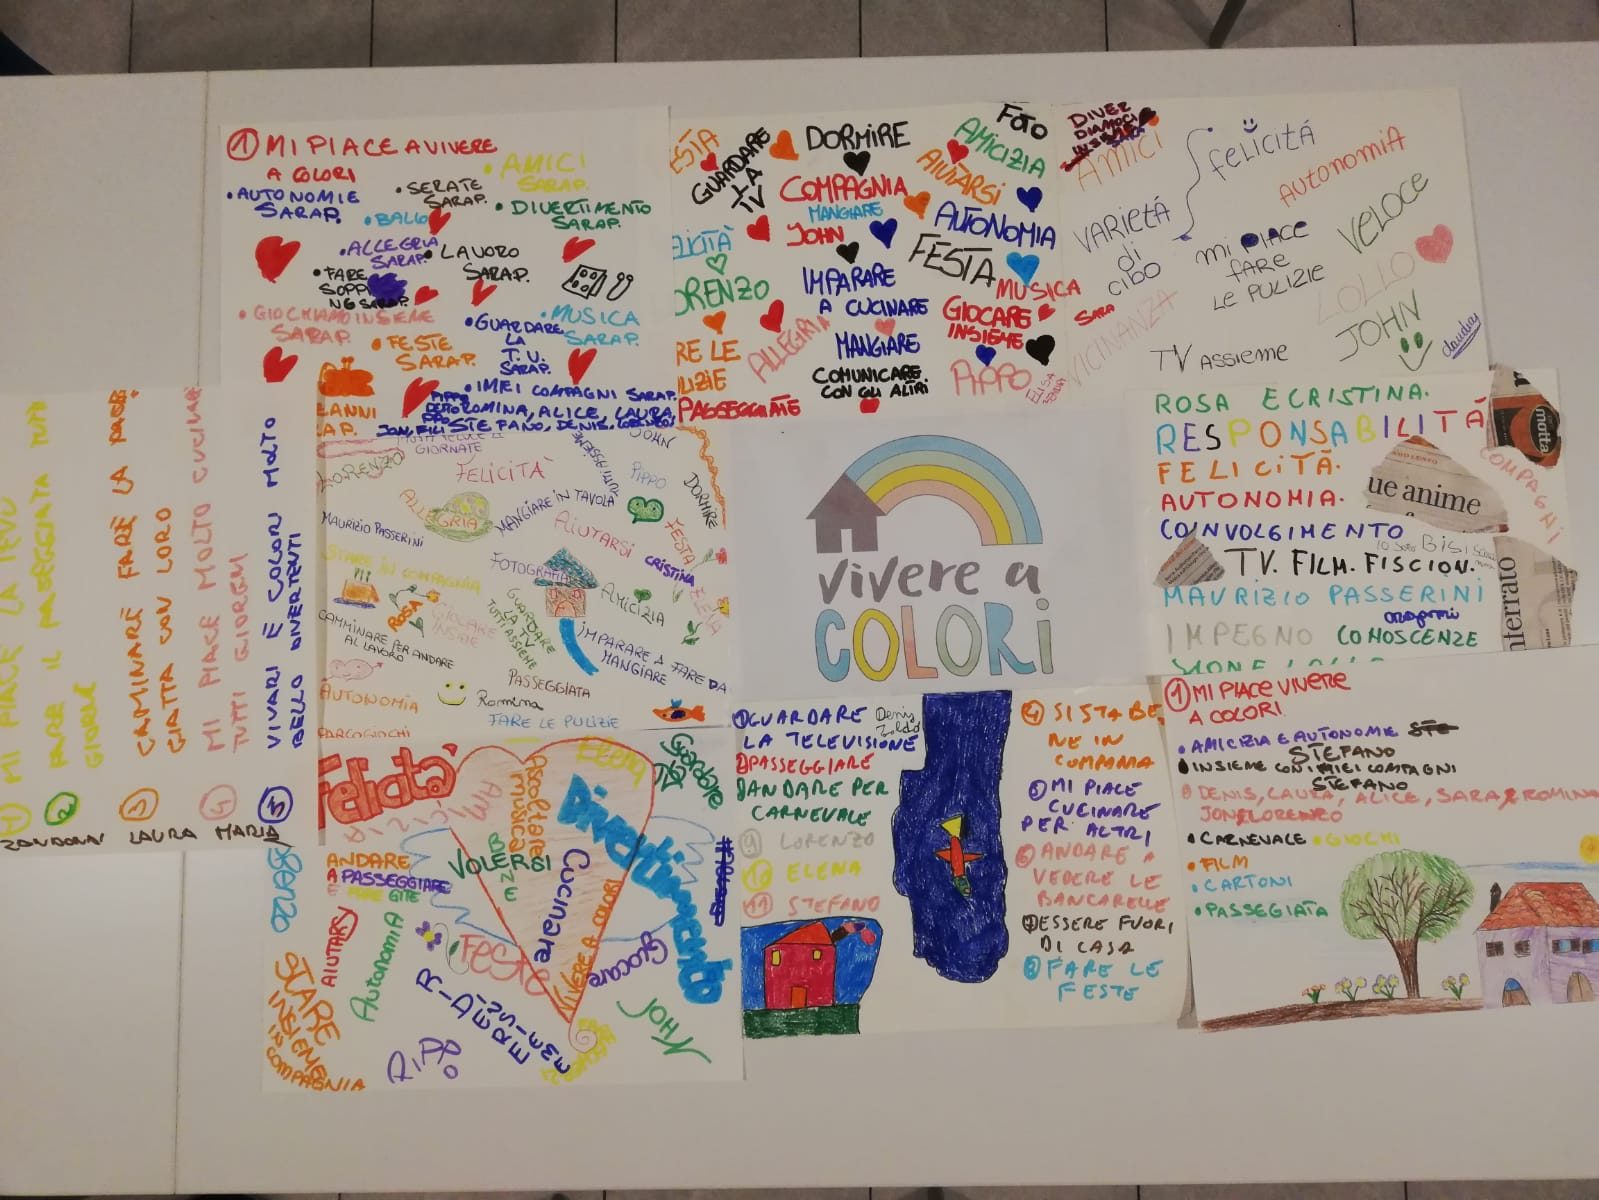 ① MI PIACE A VIVERE
A COLORI
• AUTONOMIE
SARAP.
• SERATE
SARAP.
• AMICI
SARAP.
• BALLO
• DIVERTIMENTO
SARAP.
• ALLEGRIA
SARAP.
• LAVORO
SARAP.
• FARE
• GIOCHIAMO INSIEME
SARAP.
• GUARDARE
LA
T.V.
SARAP.
• MUSICA
SARAP.
• FESTE
SARAP.
• I MIEI COMPAGNI SARAP.
ROMINA, ALICE, LAURA,
STEFANO, DENIS, LORENZO,
GUARDARE
LA
TV
DORMIRE
FOTO
AMICIZIA
COMPAGNIA
AIUTARSI
MANGIARE
JOHN
AUTONOMIA
FESTA
IMPARARE
A CUCINARE
MUSICA
ALLEGRIA
GIOCARE
INSIEME
MANGIARE
COMUNICARE
CON GLI ALTRI
PIPPO
PASSEGGIATE
DIVER
DIAMOCI
AMICI
FELICITÁ
AUTONOMIA
VARIETÁ
di
CIBO
MI PIACE
FARE
LE PULIZIE
VELOCE
SARA
VICINANZA
LOLLO
JOHN
TV ASSIEME
claudia
MI PIACE LA
FARE IL PASEGGIATA
CAMINARE FARE LA
CON LORO
MI PIACE MOLTO CUCINARE
TUTTI GIORNI
VIVARI E COLORI MOLTO
BELLO DIVERTENTI
1
2
3
4
5
LAURA
MARIA
GIORNATE
JOHN
LORENZO
FELICITÀ
TUTTI ASSIEME
PIPPO
DORMIRE
ALLEGRIA
MANGIARE IN TAVOLA
MAURIZIO PASSERINI
AIUTARSI
FESTA
STARE IN COMPAGNIA
FOTOGRAFIA
CRISTINA
ROSA
GIOCARE
INSIEME
GUARDARE
LA TV
TUTTI ASSIEME
AMICIZIA
ELENA
CAMMINARE PER ANDARE
AL LAVORO
IMPARARE A FARE DA
MANGIARE
PASSEGGIATA
AUTONOMIA
Romina
FARE LE PULIZIE
PARCO GIOCHI
vivere a
COLORI
ROSA E CRISTINA.
RESPONSABILITÁ
FELICITÁ.
AUTONOMIA.
COINVOLGIMENTO
TV. FILM. FISCION.
MAURIZIO PASSERINI
IMPEGNO CONOSCENZE
COMPAGNI
motta
ue anime
terrato
Felicità
ELENA
Guardare
AMICIZIA
Ascoltare
musica
Divertimento
VOLERSI
BENE
Cucinare
VIVERE A COLORI
ANDARE
A PASSEGGIARE
E FARE GITE
AIUTARSI
Autonomia
FESTE
Giocare
STARE
INSIEME
IN COMPAGNIA
RIDERE
INSIEME
PIPPO
JOHN
① GUARDARE
LA TELEVISIONE
② PASSEGGIARE
③ ANDARE PER
CARNEVALE
⑨ LORENZO
⑩ ELENA
⑪ STEFANO
Denis
④ SI STA BE
NE IN
⑤ MI PIACE
CUCINARE
PER ALTRI
⑥ ANDARE A
VEDERE LE
BANCARELLE
⑦ ESSERE FUORI
DI CASA
⑧ FARE LE
FESTE
① MI PIACE VIVERE
A COLORI
• AMICIZIA E AUTONOMIE
STEFANO
• INSIEME CON I MIEI COMPAGNI
STEFANO
DENIS, LAURA, ALICE, SARA, ROMINA
JON, LORENZO
• CARNEVALE • GIOCHI
• FILM
• CARTONI
• PASSEGIATA